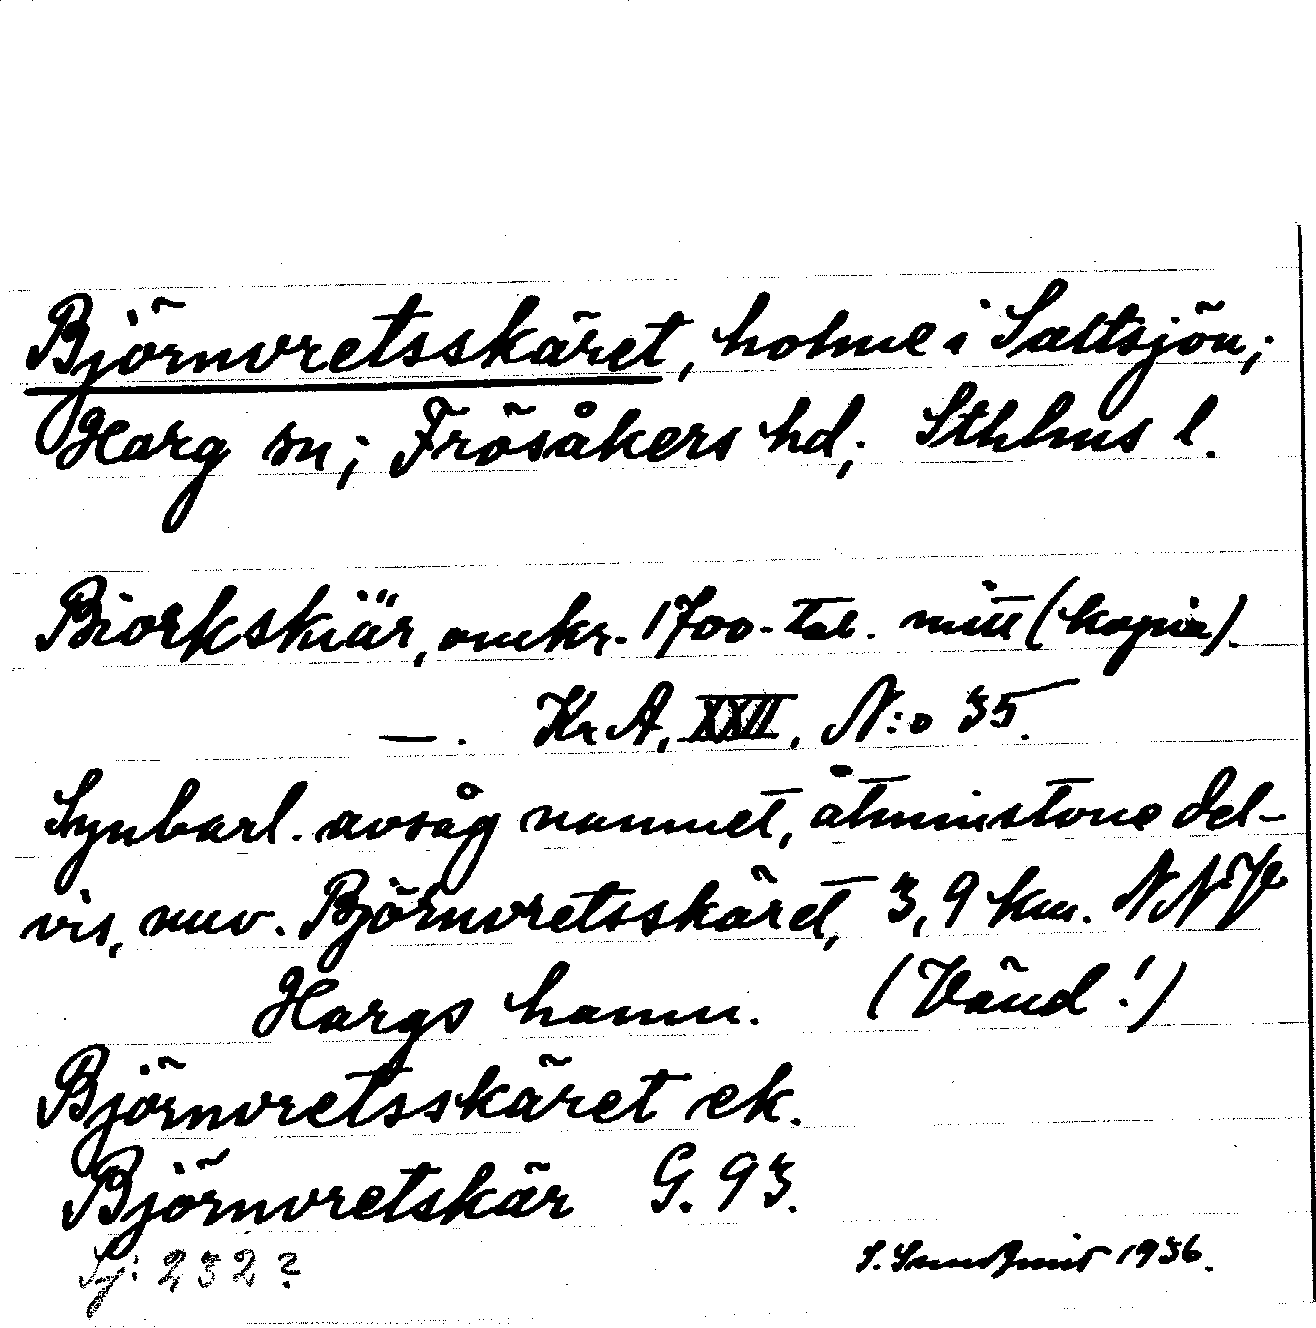 Björnvretsskäret, holme i Saltsjön;
Harg sn; Frösåkers hd; Sthlms l.
Biorkskiär, omkr. 1700-tal. mitt (kopia).
—. KrA, XXII, N:o 35.
Synbarl. avsåg namnet, åtminstone del-
vis, nuv. Björnvretsskäret, 3,9 km. NNV
Hargs hamn. (Vänd!)
Björnvretsskäret ek.
Björnvretskär G. 93.
Sj: 232?
S. 1936.